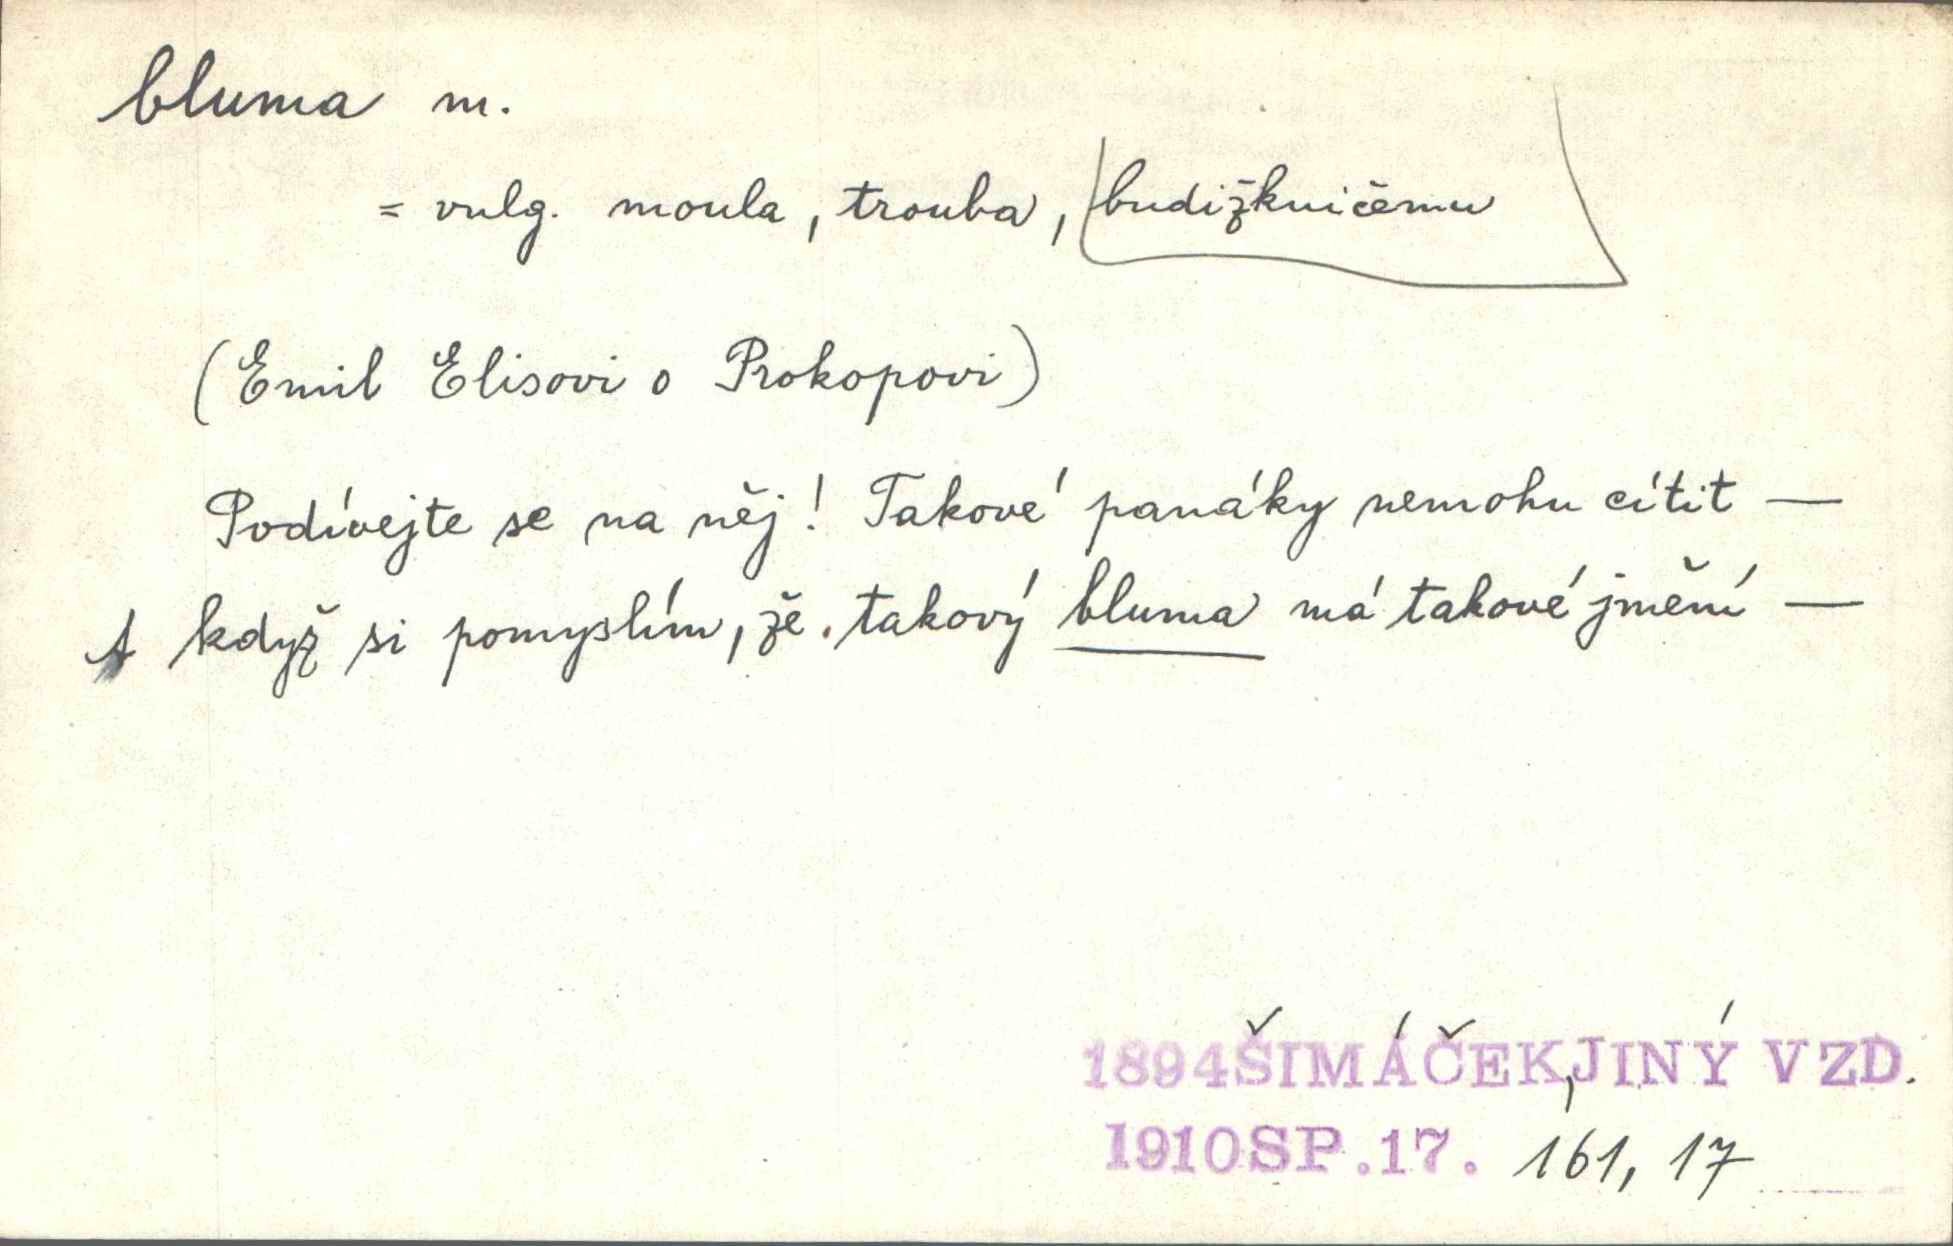 bluma m.
= vulg. moula, trouba, budižkničemu
(Emil Elisovi o Prokopovi)
Podívejte se na něj! Takové panáky nemohu cítit —
A když si pomyslím, že takový bluma má takové jmění —
1894 ŠIMÁČEK, JINÝ VZD.
1910 SP. 17. 161, 17